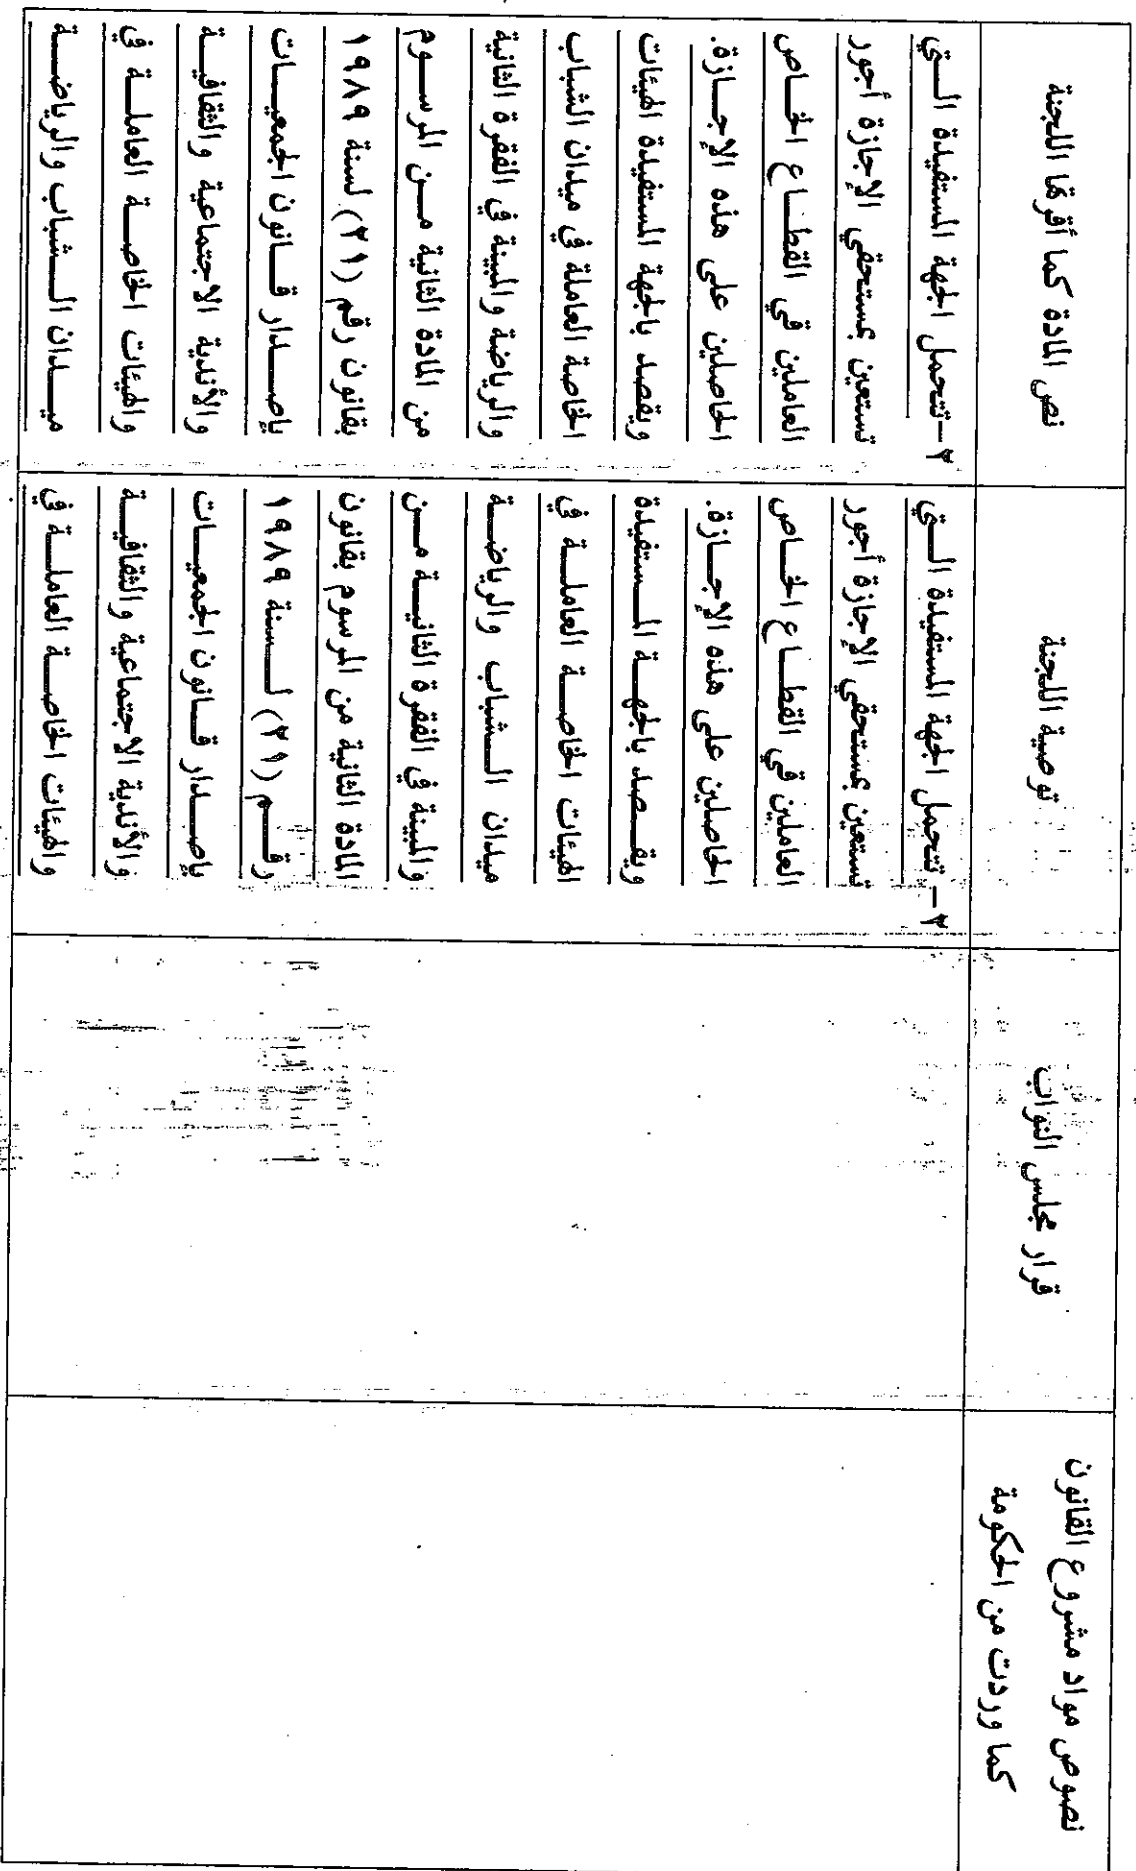 نصوص مواد مشروع القانون
كما وردت من الحكومة
قرار مجلس النواب
توصية اللجنة
نص المادة كما أقرتها اللجنة
٢- تتحمل الجهة المستفيدة الــتي
تستعين بمستحقي الإجازة أجور
العاملين في القطــاع الخــاص
الحاصلين على هذه الإجــازة.
ويقــصد بالجهــة المــستفيدة
الهيئات الخاصــة العاملــة في
ميدان الــشباب والرياضــة
والمبينة في الفقرة الثانيــة مــن
المادة الثانية من المرسوم بقانون
رقــم (٢١) لــسنة ١٩٨٩
بإصــدار قــانون الجمعيــات
والأندية الاجتماعية والثقافيــة
والهيئات الخاصــة العاملــة في
٢- تتحمل الجهة المستفيدة الــتي
تستعين بمستحقي الإجازة أجور
العاملين في القطــاع الخــاص
الحاصلين على هذه الإجــازة.
ويقصد بالجهة المستفيدة الهيئات
الخاصة العاملة في ميدان الشباب
والرياضة والمبينة في الفقرة الثانية
من المادة الثانية مــن المرســوم
بقانون رقم (٢١) لسنة ١٩٨٩
بإصــدار قــانون الجمعيــات
والأندية الاجتماعية والثقافيــة
والهيئات الخاصــة العاملــة في
ميــدان الــشباب والرياضــة